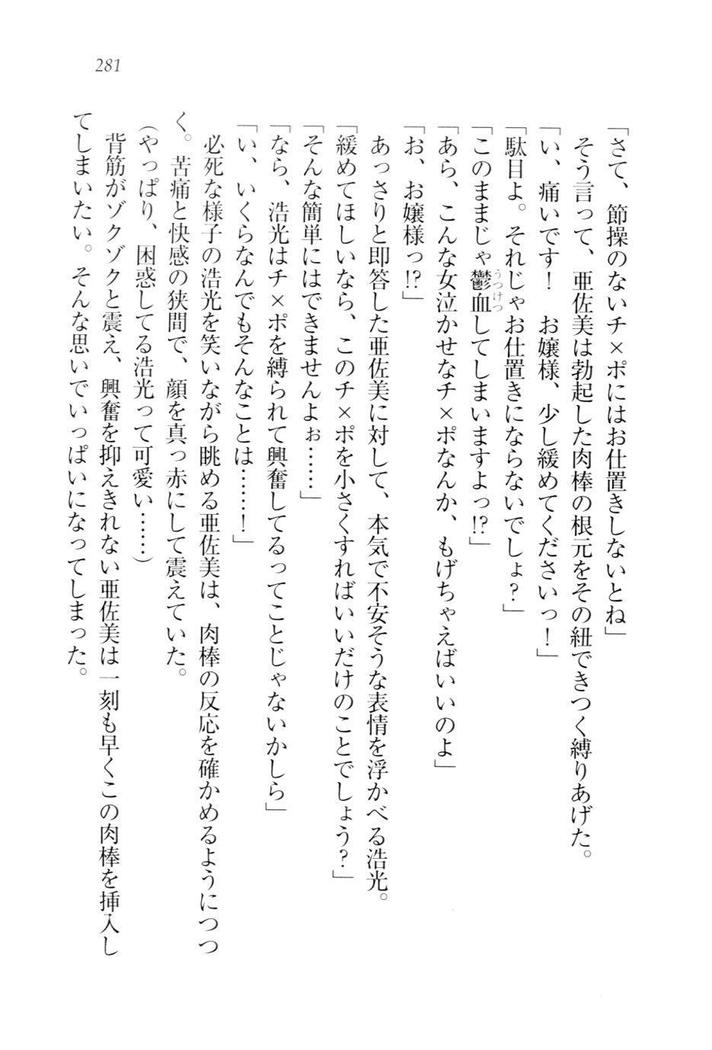 281
「さて、節操のないチ×ポにはお仕置きしないとね」
そう言って、亜佐美は勃起した肉棒の根元をその紐できつく縛りあげた。
「い、痛いです！　お嬢様、少し緩めてくださいっ！」
「駄目よ。それじゃお仕置きにならないでしょ？」
「このままじゃ鬱血してしまいますよっ!?」
うつけつ
「あら、こんな女泣かせなチ×ポなんか、もげちゃえばいいのよ」
「お、お嬢様っ!?」
あっさりと即答した亜佐美に対して、本気で不安そうな表情を浮かべる浩光。
「緩めてほしいなら、このチ×ポを小さくすればいいだけのことでしょう？」
「そんな簡単にはできませんよぉ……」
「なら、浩光はチ×ポを縛られて興奮してるってことじゃないかしら」
「い、いくらなんでもそんなことは……！」
必死な様子の浩光を笑いながら眺める亜佐美は、肉棒の反応を確かめるようにつつ
く。苦痛と快感の狭間で、顔を真っ赤にして震えていた。
（やっぱり、困惑してる浩光って可愛い……）
背筋がゾクゾクと震え、興奮を抑えきれない亜佐美は一刻も早くこの肉棒を挿入し
てしまいたい。そんな思いでいっぱいになってしまった。